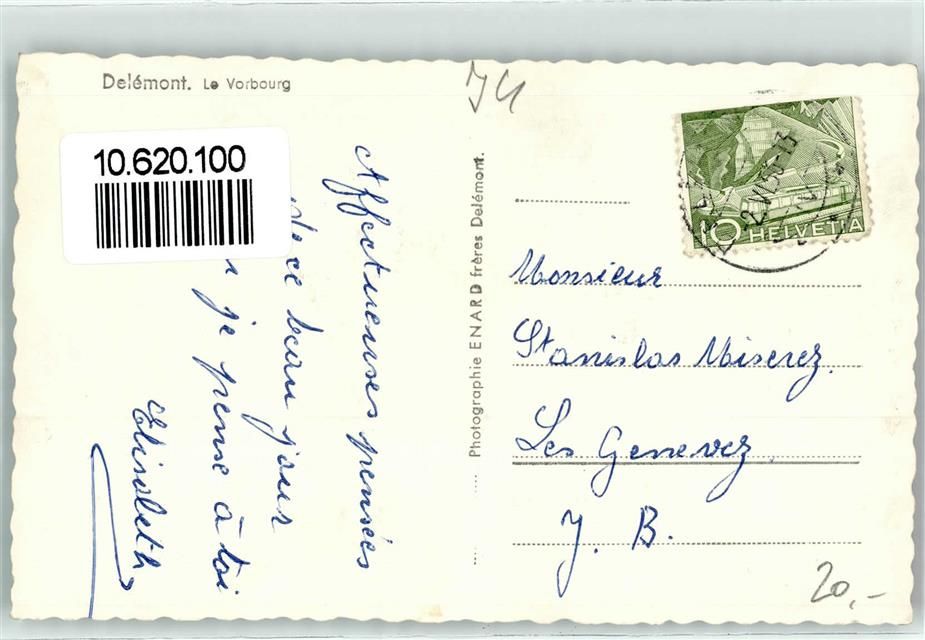 Delémont. Le Vorbourg
10.620.100
Affectueuses pensées
de ce beau jour
je pense à toi
Elisabeth
Photographie ENARD frères Delémont.
JU
10 HELVETIA
Monsieur
Stanislas Miserez.
Les Genevez
J. B.
20,-